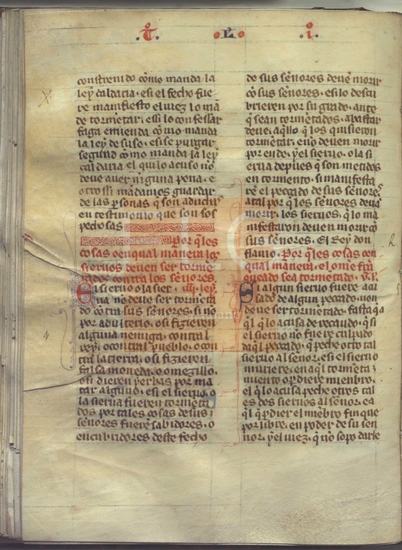 T. L. i.
constrenido cõmo manda la
ley caldaria. e si el fecho fue
re manifiesto el iuez lo mã
de tormentar. e si lo confessar
faga emienda cõmo manda
la ley de suso. e si se purgar
segund cõmo manda la ley
caldaria el quilo acuso no
deue auer ninguna pena. e
otrossi mãdamos guardar
de las psonas q̃ son aduchas
en testimonio que son sos
pechosas
Por q̃les
cosas o en qual manera los
sieruos deuen ser torme
tados contra los señores
El sieruo o la sier. iiij. ley.
ua no deue ser tormẽta
do cõtra sus señores. si no
por adulterio. o si fizieren
alguna nemiga contra el
rey. o contral pueblo. o con
tra la tierra. o si fizieren
falsa moneda. o omezillo.
o si dieren yerbas por ma
tar alguno. e si el sieruo. o
la sierua fueren tormẽta
dos por tales cosas de sus
señores fuerẽ sabidores. o
encubridores deste fecho
de sus señores deuẽ morir
cõ sus señores. e si lo descu
brieren por su grado. ante
q̃ sean tormẽtados. abastar
deue. aq̃llo q̃ los quisieron
tormẽtar. e no deuen morir
por ende. y el sieruo. o la si
erua despues q̃ son metidos
en tormẽto. si manifesta
rẽ el pecado de sus señores
atal por q̃ los señores deuã
morir. los sieruos. q̃ lo ma
nifestaron deuẽ morir cõ
sus señores. El rey don
flauio. Por q̃les cosas e en
qual manera. el ome frã
queado sea tormẽtado. v. l.
Si algun sieruo fuere acu
sado de algun pecado. non
deue ser tormẽtado. fasta q̃
el q̃ lo acusa de pecado. q̃ si
el sieruo no fuere culpado
daq̃l pecado. q̃ peche otro tal
sieruo al señor. e si el sieruo
muriere. en aq̃l tormẽta
miento. o p̃diere miẽbro.
el q̃ lo acusa peche otros tal
es dos sieruos al señor. e a
q̃l q̃ p̃dier el miẽbro finque
por libre. en poder de su sen
nor. y el iuez. q̃ no sopo darle